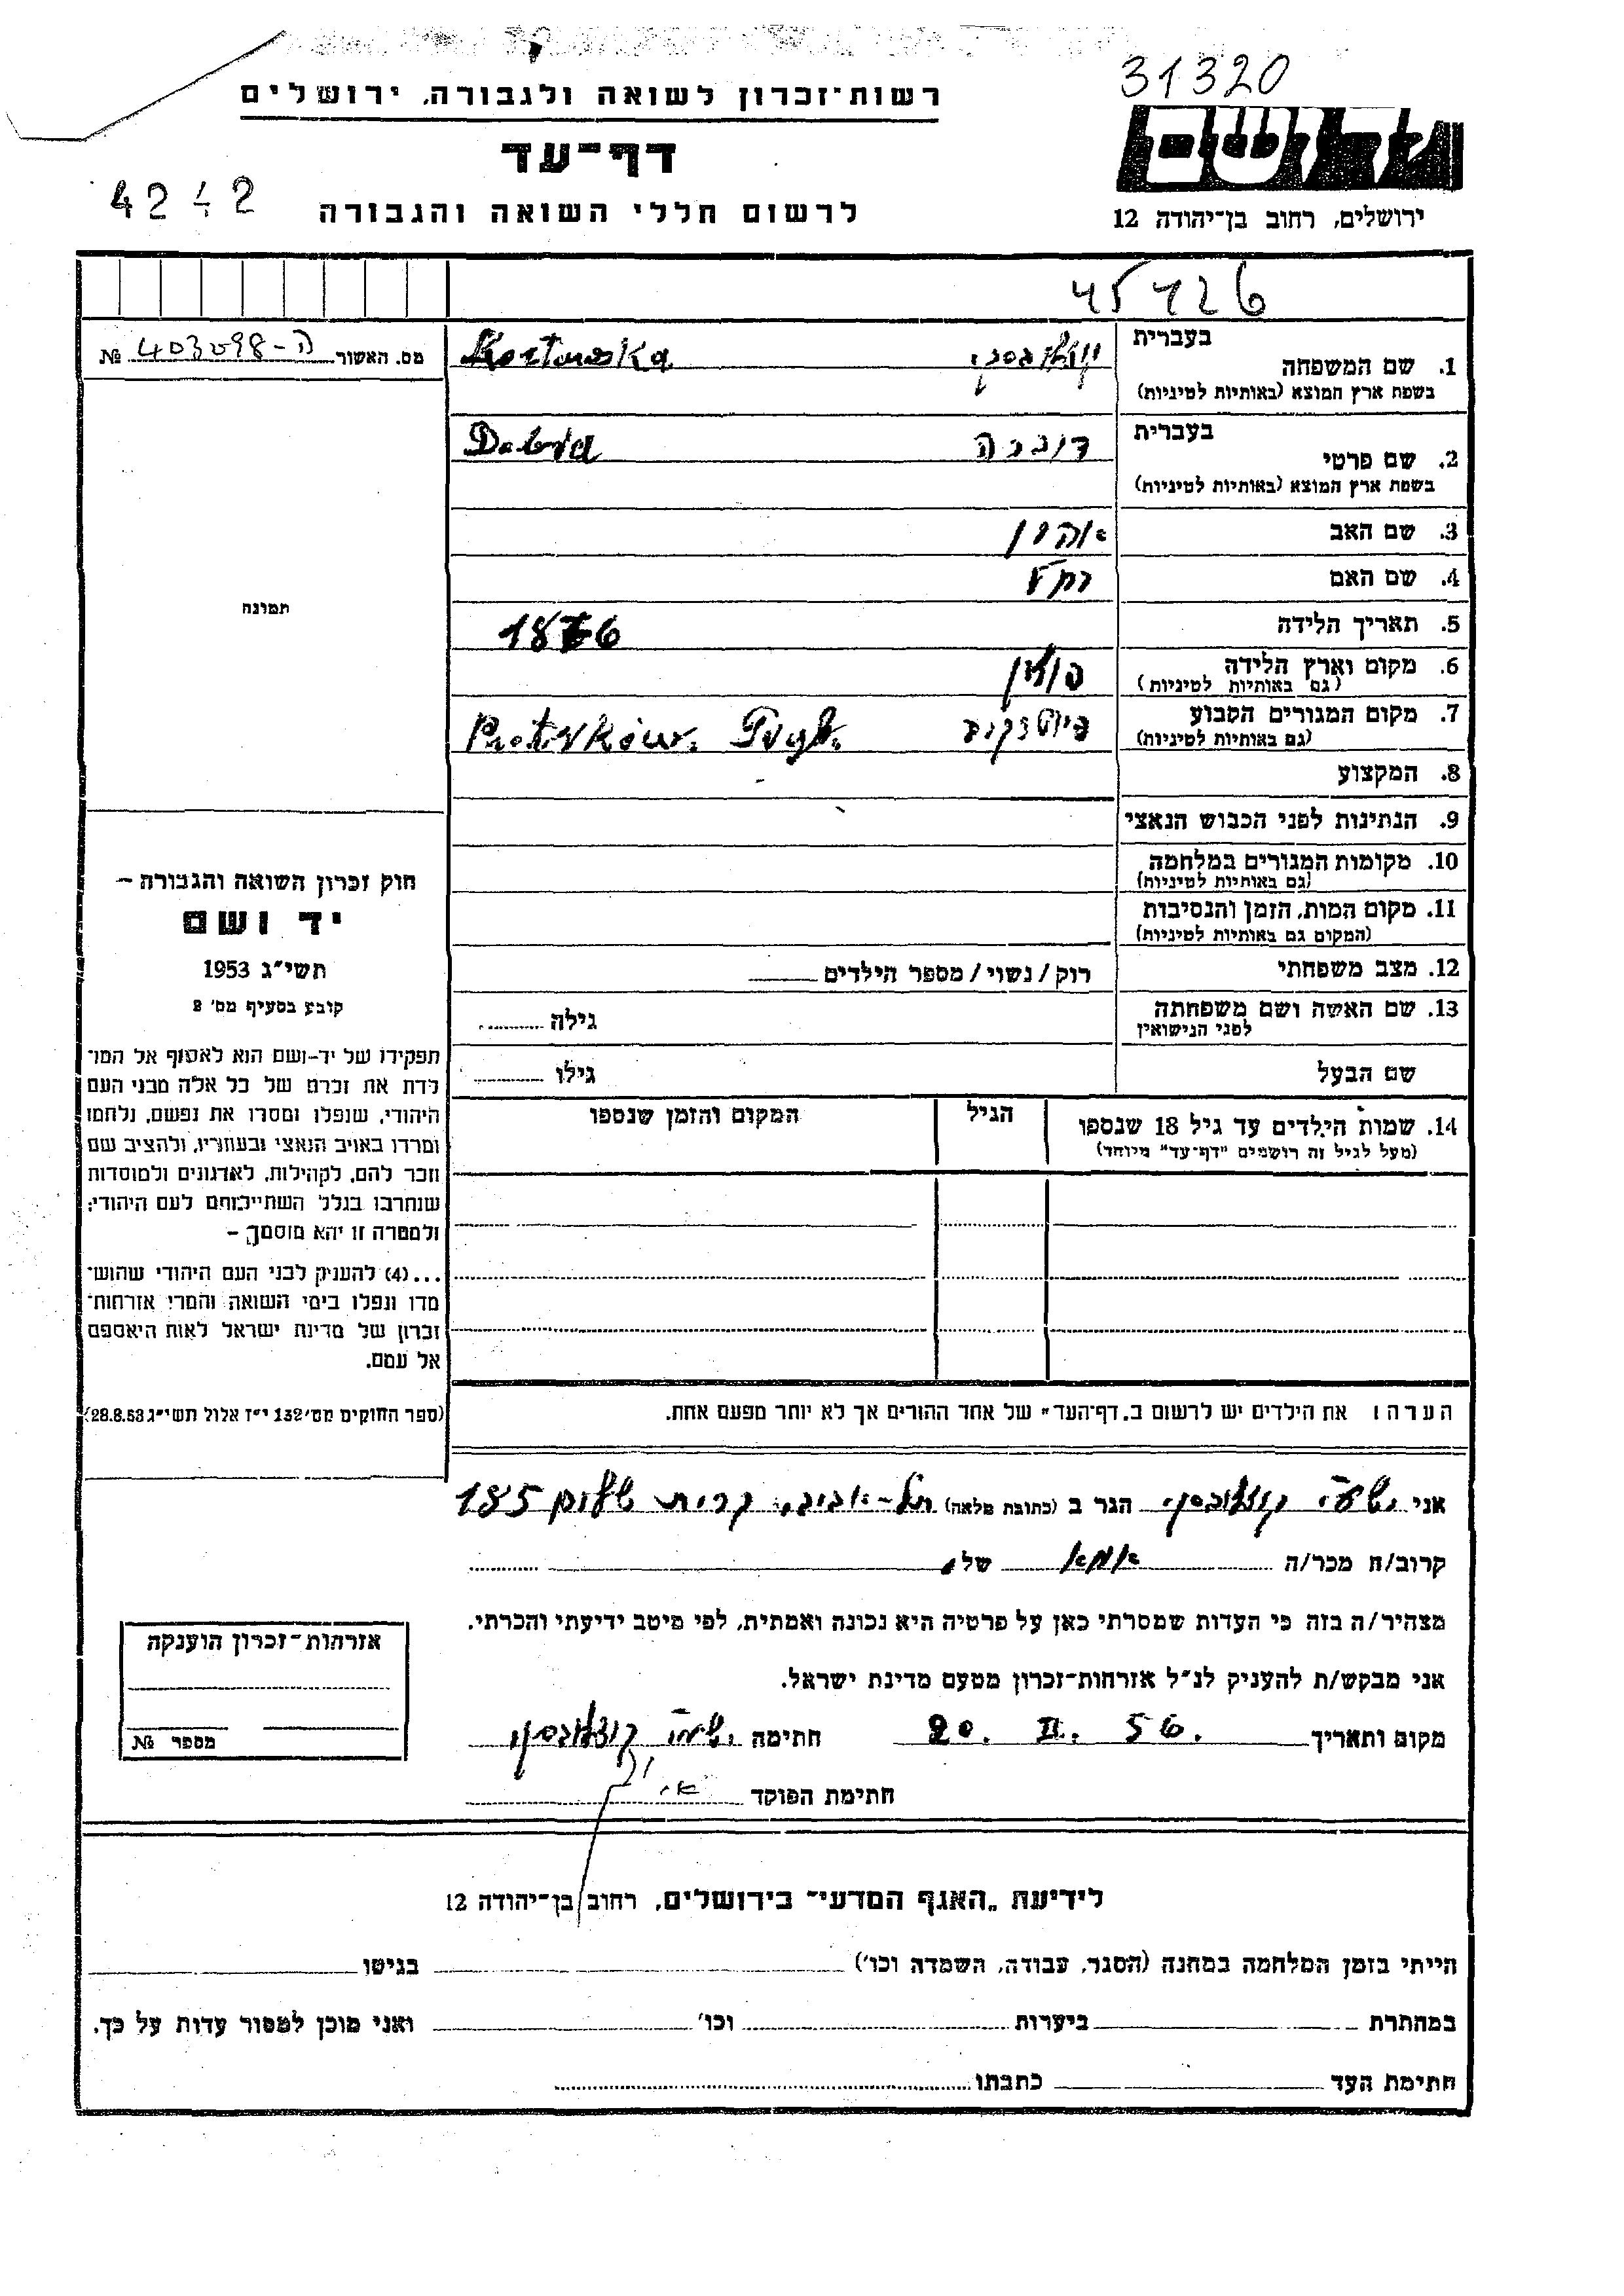 31320
רשות־זכרון לשואה ולגבורה, ירושלים
דף־עד
לרשום חללי השואה והגבורה
4242
ירושלים, רחוב בן־יהודה 12
45126
מס. האשור ה-403098 №
בעברית
1. שם המשפחה
(בשפת ארץ המוצא (באותיות לטיניות
בעברית
דוברה
2. שם פרטי
(בשפת ארץ המוצא (באותיות לטיניות
3. שם האב אהרן
4. שם האם
תמונה
5. תאריך הלידה
6. מקום וארץ הלידה
(גם באותיות לטיניות)
7. מקום המגורים הקבוע
(גם באותיות לטיניות)
8. המקצוע
9. הנתינות לפני הכבוש הנאצי
10. מקומות המגורים במלחמה
(גם באותיות לטיניות)
11. מקום המות, הזמן והנסיבות
(המקום גם באותיות לטיניות)
12. מצב משפחתי רוק/נשוי/מספר הילדים
13. שם האשה ושם משפחתה
לפני הנישואין
גילה
שם הבעל גילו
14. שמות הילדים עד גיל 18 שנספו הגיל המקום והזמן שנספו
(מעל לגיל זה רושמים "דף־עד" מיוחד)
חוק זכרון השואה והגבורה –
יד ושם
תשי"ג 1953
קובע בסעיף מס' 2
תפקידו של יד-ושם הוא לאסוף אל המו־
לדת את זכרם של כל אלה מבני העם
היהודי, שנפלו ומסרו את נפשם, נלחמו
ומרדו באויב הנאצי ובעוזריו, ולהציב שם
וזכר להם, לקהילות, לארגונים ולמוסדות
שנחרבו בגלל השתייכותם לעם היהודי;
ולמטרה זו יהא מוסמך –
...(4) להעניק לבני העם היהודי שהוש־
מדו ונפלו בימי השואה והמרי אזרחות־
זכרון של מדינת ישראל לאות היאספם
אל עמם.
(ספר החוקים מס' 132 י"ז אלול תשי"ג 28.8.53)
הערה: את הילדים יש לרשום ב„דף־העד" של אחד ההורים אך לא יותר מפעם אחת.
אני הגר ב (כתובת מלאה) תל-אביב, קרית שלום 185
קרוב/ה מכר/ה אמא של
מצהיר/ה בזה כי העדות שמסרתי כאן על פרטיה היא נכונה ואמתית, לפי מיטב ידיעתי והכרתי.
אני מבקש/ת להעניק לנ"ל אזרחות־זכרון מטעם מדינת ישראל.
מקום ותאריך 20. II. 56. חתימה
חתימת הפוקד
אזרחות־זכרון הוענקה
מספר №
לידיעת „האגף המדעי" בירושלים, רחוב בן־יהודה 12
הייתי בזמן המלחמה במחנה (הסגר, עבודה, השמדה וכו') בגיטו
במחתרת ביערות וכו' ואני מוכן למסור עדות על כך.
חתימת העד כתבתו